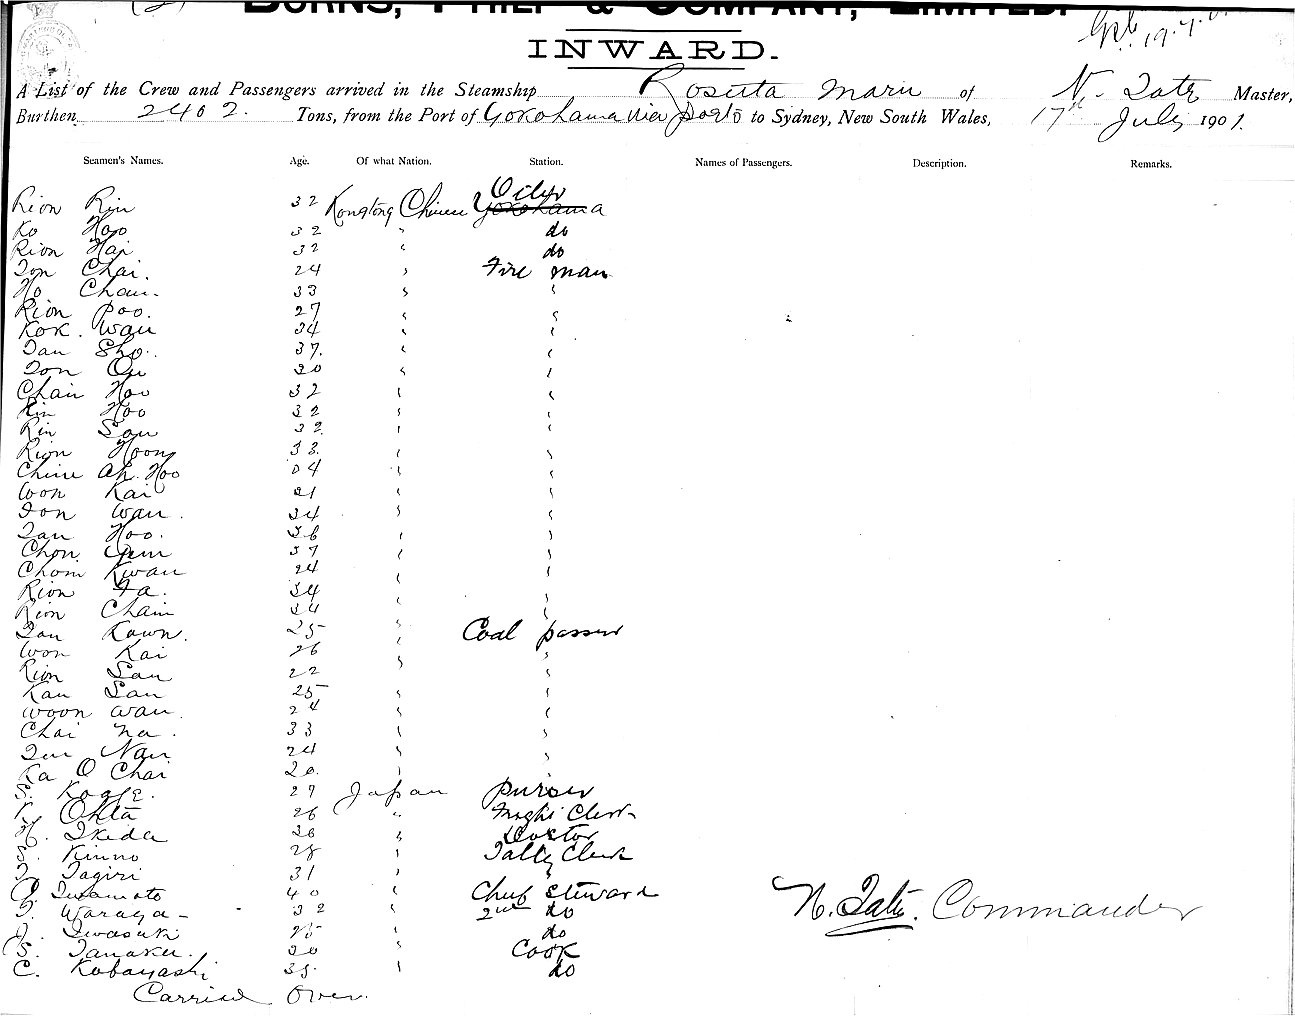 BURNS, PHILP & COMPANY, LIMITED.
19.7.01
INWARD.
A List of the Crew and Passengers arrived in the Steamship Rosetta Maru of N. Tate Master,
Burthen 2402. Tons, from the Port of Yokohama via ports to Sydney, New South Wales, 17th July 1901.
Seamen's Names. Age. Of what Nation. Station. Names of Passengers. Description. Remarks.
Rion Rin 32 Kongtong Chinese Oiler Yokohama
Ko Hoo 32 " do
Rion Hai 32 " do
Ton Chai. 24 " Fire man
Ho Chan. 33 " "
Rion Poo. 27 " "
Kok. Wan 34 " "
Tan Sho. 37. " "
Ton 30 " "
Chan Hoo 32 " "
Rin Hoo 32 " "
Rin San 32. " "
Rion Hoong 33. " "
Ah Hoo 34 " "
Won Kai 21 " "
Ton Wan. 34 " "
Tan Hoo. 36 " "
Chon 37 " "
Chom Kwan 24 " "
Rion Fa. 34 " "
Rion Cham 34 " "
Tan Kawn. 25 " Coal passer
Won Kai 26 " "
Rion San 22 " "
Kan San 25 " "
Woon Wan. 24 " "
Chai Na. 33 " "
Nan 24 " "
Ka O Chai 20. " "
S. 27 Japan Purser
K. Ohta 26 " Clerk
H. Ikeda 36 " Doctor
S. Kinno 28 " Tally Clerk
Tagiri 31 " "
Iwamoto 40 " Chief Steward
T. Waraya 32 " 2nd do
J. Iwasaki 25 " do
S. Tanaka. 30 " Cook
C. Kobayashi 35. " do
N. Tate. Commander
Carried Over.